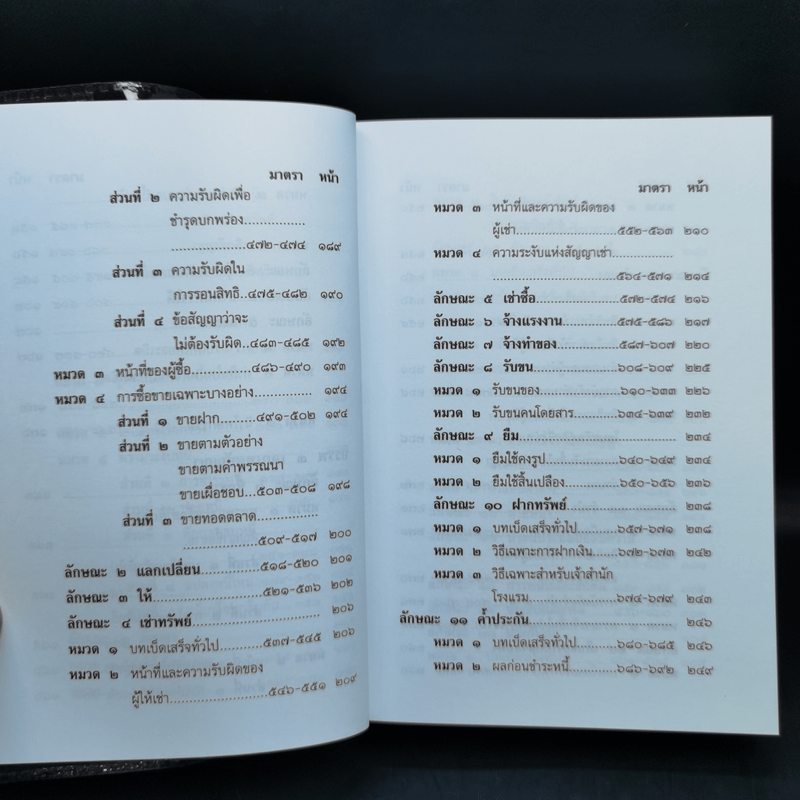 มาตรา หน้า
ส่วนที่ ๒ ความรับผิดเพื่อ
ชำรุดบกพร่อง................
....................๔๗๒-๔๗๔ ๑๘๙
ส่วนที่ ๓ ความรับผิดใน
การรอนสิทธิ..๔๗๕-๔๘๒ ๑๙๐
ส่วนที่ ๔ ข้อสัญญาว่าจะ
ไม่ต้องรับผิด..๔๘๓-๔๘๕ ๑๙๒
หมวด ๓ หน้าที่ของผู้ซื้อ............๔๘๖-๔๙๐ ๑๙๓
หมวด ๔ การซื้อขายเฉพาะบางอย่าง............ ๑๙๔
ส่วนที่ ๑ ขายฝาก........๔๙๑-๕๐๒ ๑๙๔
ส่วนที่ ๒ ขายตามตัวอย่าง
ขายตามคำพรรณนา
ขายเผื่อชอบ.....๕๐๓-๕๐๘ ๑๙๘
ส่วนที่ ๓ ขายทอดตลาด................
....................๕๐๙-๕๑๗ ๒๐๐
ลักษณะ ๒ แลกเปลี่ยน...............๕๑๘-๕๒๐ ๒๐๑
ลักษณะ ๓ ให้...........................๕๒๑-๕๓๖ ๒๐๒
ลักษณะ ๔ เช่าทรัพย์.................................. ๒๐๖
หมวด ๑ บทเบ็ดเสร็จทั่วไป......๕๓๗-๕๔๕ ๒๐๖
หมวด ๒ หน้าที่และความรับผิดของ
ผู้ให้เช่า.......................๕๔๖-๕๕๑ ๒๐๙
มาตรา หน้า
หมวด ๓ หน้าที่และความรับผิดของ
ผู้เช่า..........................๕๕๒-๕๖๓ ๒๑๐
หมวด ๔ ความระงับแห่งสัญญาเช่า................
..............................๕๖๔-๕๗๑ ๒๑๔
ลักษณะ ๕ เช่าซื้อ.....................๕๗๒-๕๗๔ ๒๑๖
ลักษณะ ๖ จ้างแรงงาน..............๕๗๕-๕๘๖ ๒๑๗
ลักษณะ ๗ จ้างทำของ...............๕๘๗-๖๐๗ ๒๒๐
ลักษณะ ๘ รับขน.......................๖๐๘-๖๐๙ ๒๒๕
หมวด ๑ รับขนของ....................๖๑๐-๖๓๓ ๒๒๖
หมวด ๒ รับขนคนโดยสาร.........๖๓๔-๖๓๙ ๒๓๒
ลักษณะ ๙ ยืม............................................ ๒๓๔
หมวด ๑ ยืมใช้คงรูป..................๖๔๐-๖๔๙ ๒๓๔
หมวด ๒ ยืมใช้สิ้นเปลือง...........๖๕๐-๖๕๖ ๒๓๖
ลักษณะ ๑๐ ฝากทรัพย์............................... ๒๓๘
หมวด ๑ บทเบ็ดเสร็จทั่วไป.......๖๕๗-๖๗๑ ๒๓๘
หมวด ๒ วิธีเฉพาะการฝากเงิน...๖๗๒-๖๗๓ ๒๔๒
หมวด ๓ วิธีเฉพาะสำหรับเจ้าสำนัก
โรงแรม.......................๖๗๔-๖๗๙ ๒๔๓
ลักษณะ ๑๑ ค้ำประกัน................................ ๒๔๖
หมวด ๑ บทเบ็ดเสร็จทั่วไป.......๖๘๐-๖๘๕ ๒๔๖
หมวด ๒ ผลก่อนชำระหนี้..........๖๘๖-๖๙๒ ๒๔๙